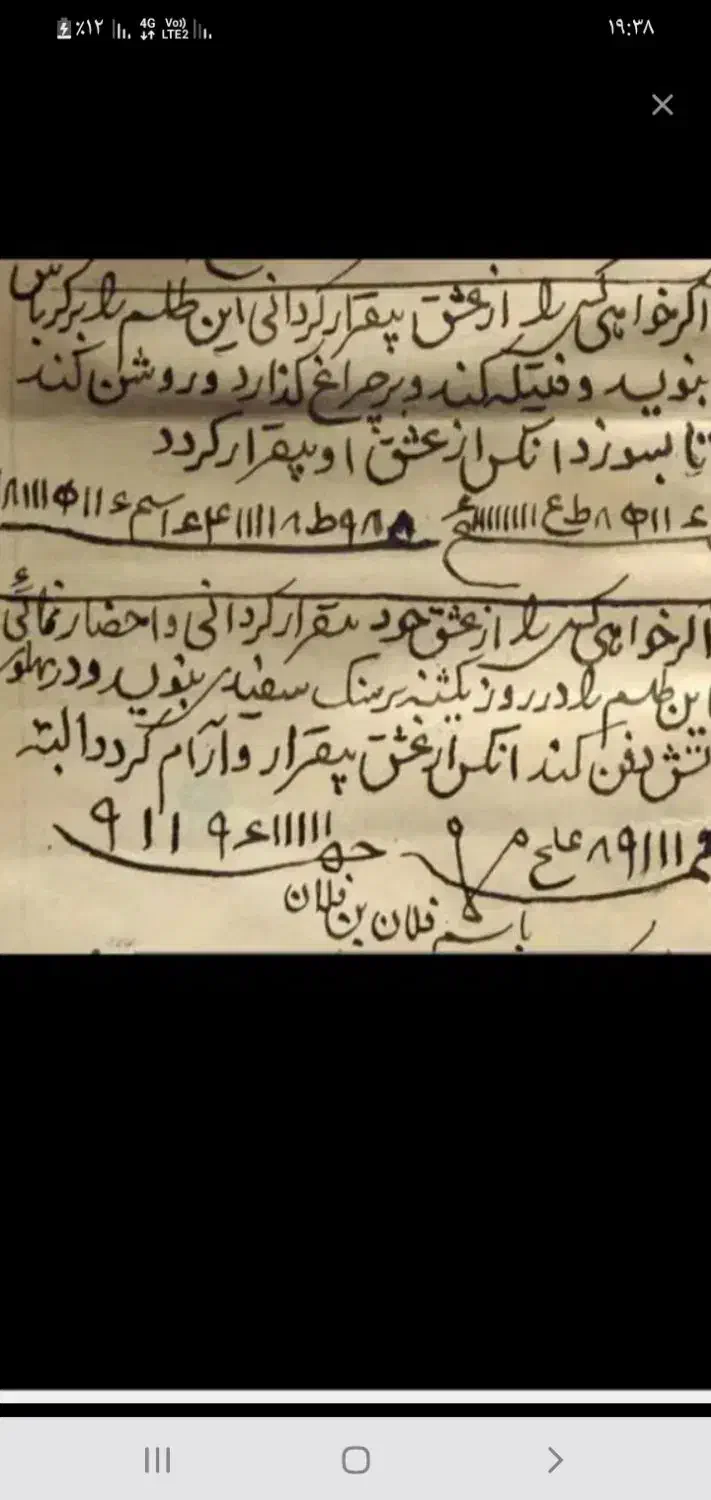 ٪۱۲ 4G Vo)) LTE2 ۱۹:۳۸
اگر خواهی کسی را از عشق بیقرار گردانی این طلسم را بر کرباس
بنویسد و فتیله کند و بر چراغ گذارد و روشن کند
تا بسوزد انکس از عشق او بیقرار گردد
ء ۱۱ ۸ ط ع ۱۱۱۱۱۱۱۱
۸ ۹ ط ۸ ۱۱۱۱۱ ء اسم ء ۱۱ ۱۱۱۸
اگر خواهی کسی را از عشق خود بیقرار گردانی و احضار نمائی
این طلسم را در روز یکشنبه بر سنک سفیدی بنویسد و در پهلوی
تش دفن کند انکس از عشق بیقرار و آرام گردد البته
۱۱۱ ۹ ۸ ۱۱۱۱۱۱ ء ۹ ۱ ۱ ۹
باسم فلان بن فلان